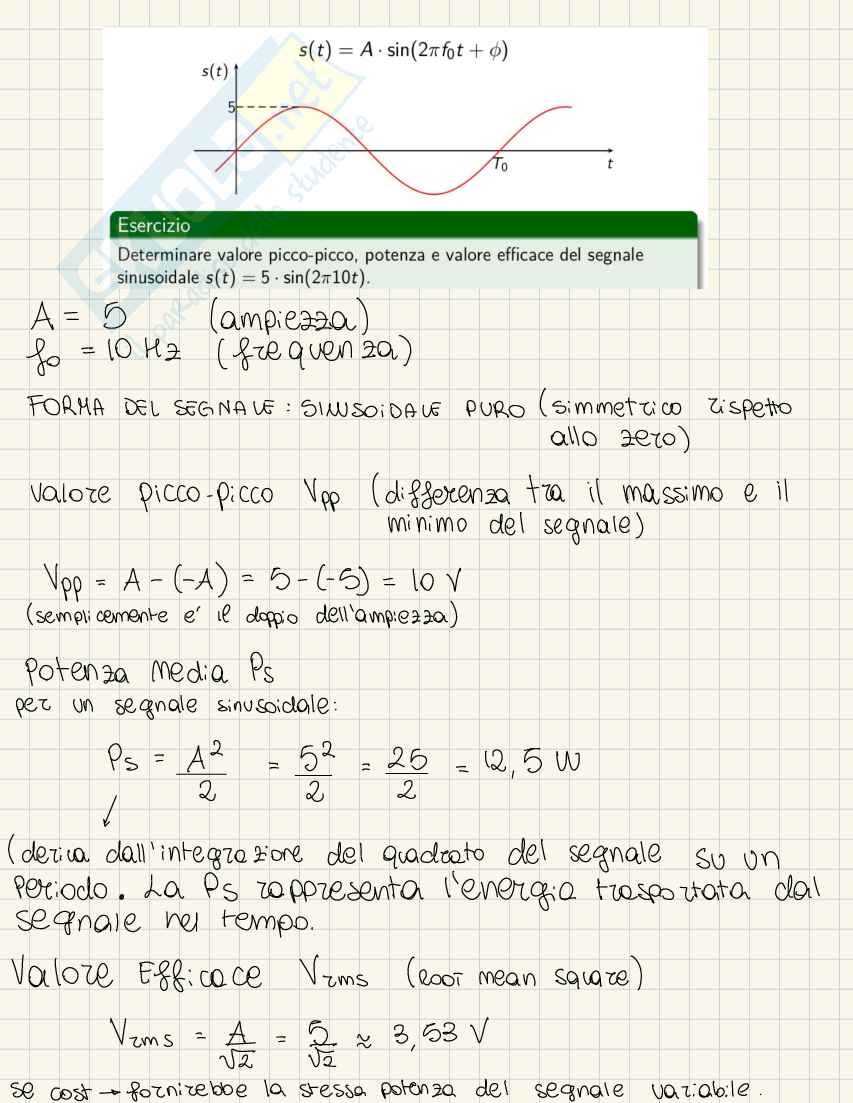 s(t) = A · sin(2πf₀t + ϕ)
s(t)
5
T₀
t
SKUOLA.net
il paradiso dello studente
Esercizio
Determinare valore picco-picco, potenza e valore efficace del segnale
sinusoidale s(t) = 5 · sin(2π10t).
A = 5 (ampiezza)
f₀ = 10 Hz (frequenza)
FORMA DEL SEGNALE: SINUSOIDALE PURO (simmetrico rispetto
allo zero)
Valore picco-picco Vpp (differenza tra il massimo e il
minimo del segnale)
Vpp = A - (-A) = 5 - (-5) = 10 V
(semplicemente e' il doppio dell'ampiezza)
Potenza media Ps
per un segnale sinusoidale:
Ps = A²/2 = 5²/2 = 25/2 = 12,5 W
(deriva dall'integrazione del quadrato del segnale su un
periodo. La Ps rappresenta l'energia trasportata dal
segnale nel tempo.
Valore Efficace Vrms (Root mean square)
Vrms = A/√2 = 5/√2 ≈ 3,53 V
se cost → fornirebbe la stessa potenza del segnale variabile.